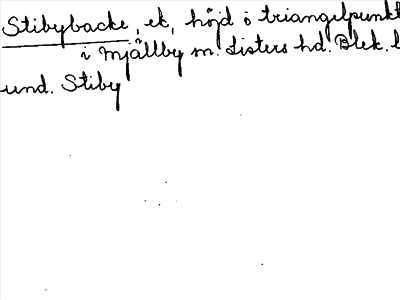 Stibybacke, ek, höjd o triangelpunkt
i Mjällby sn. Listers hd. Blek. l
und. Stiby